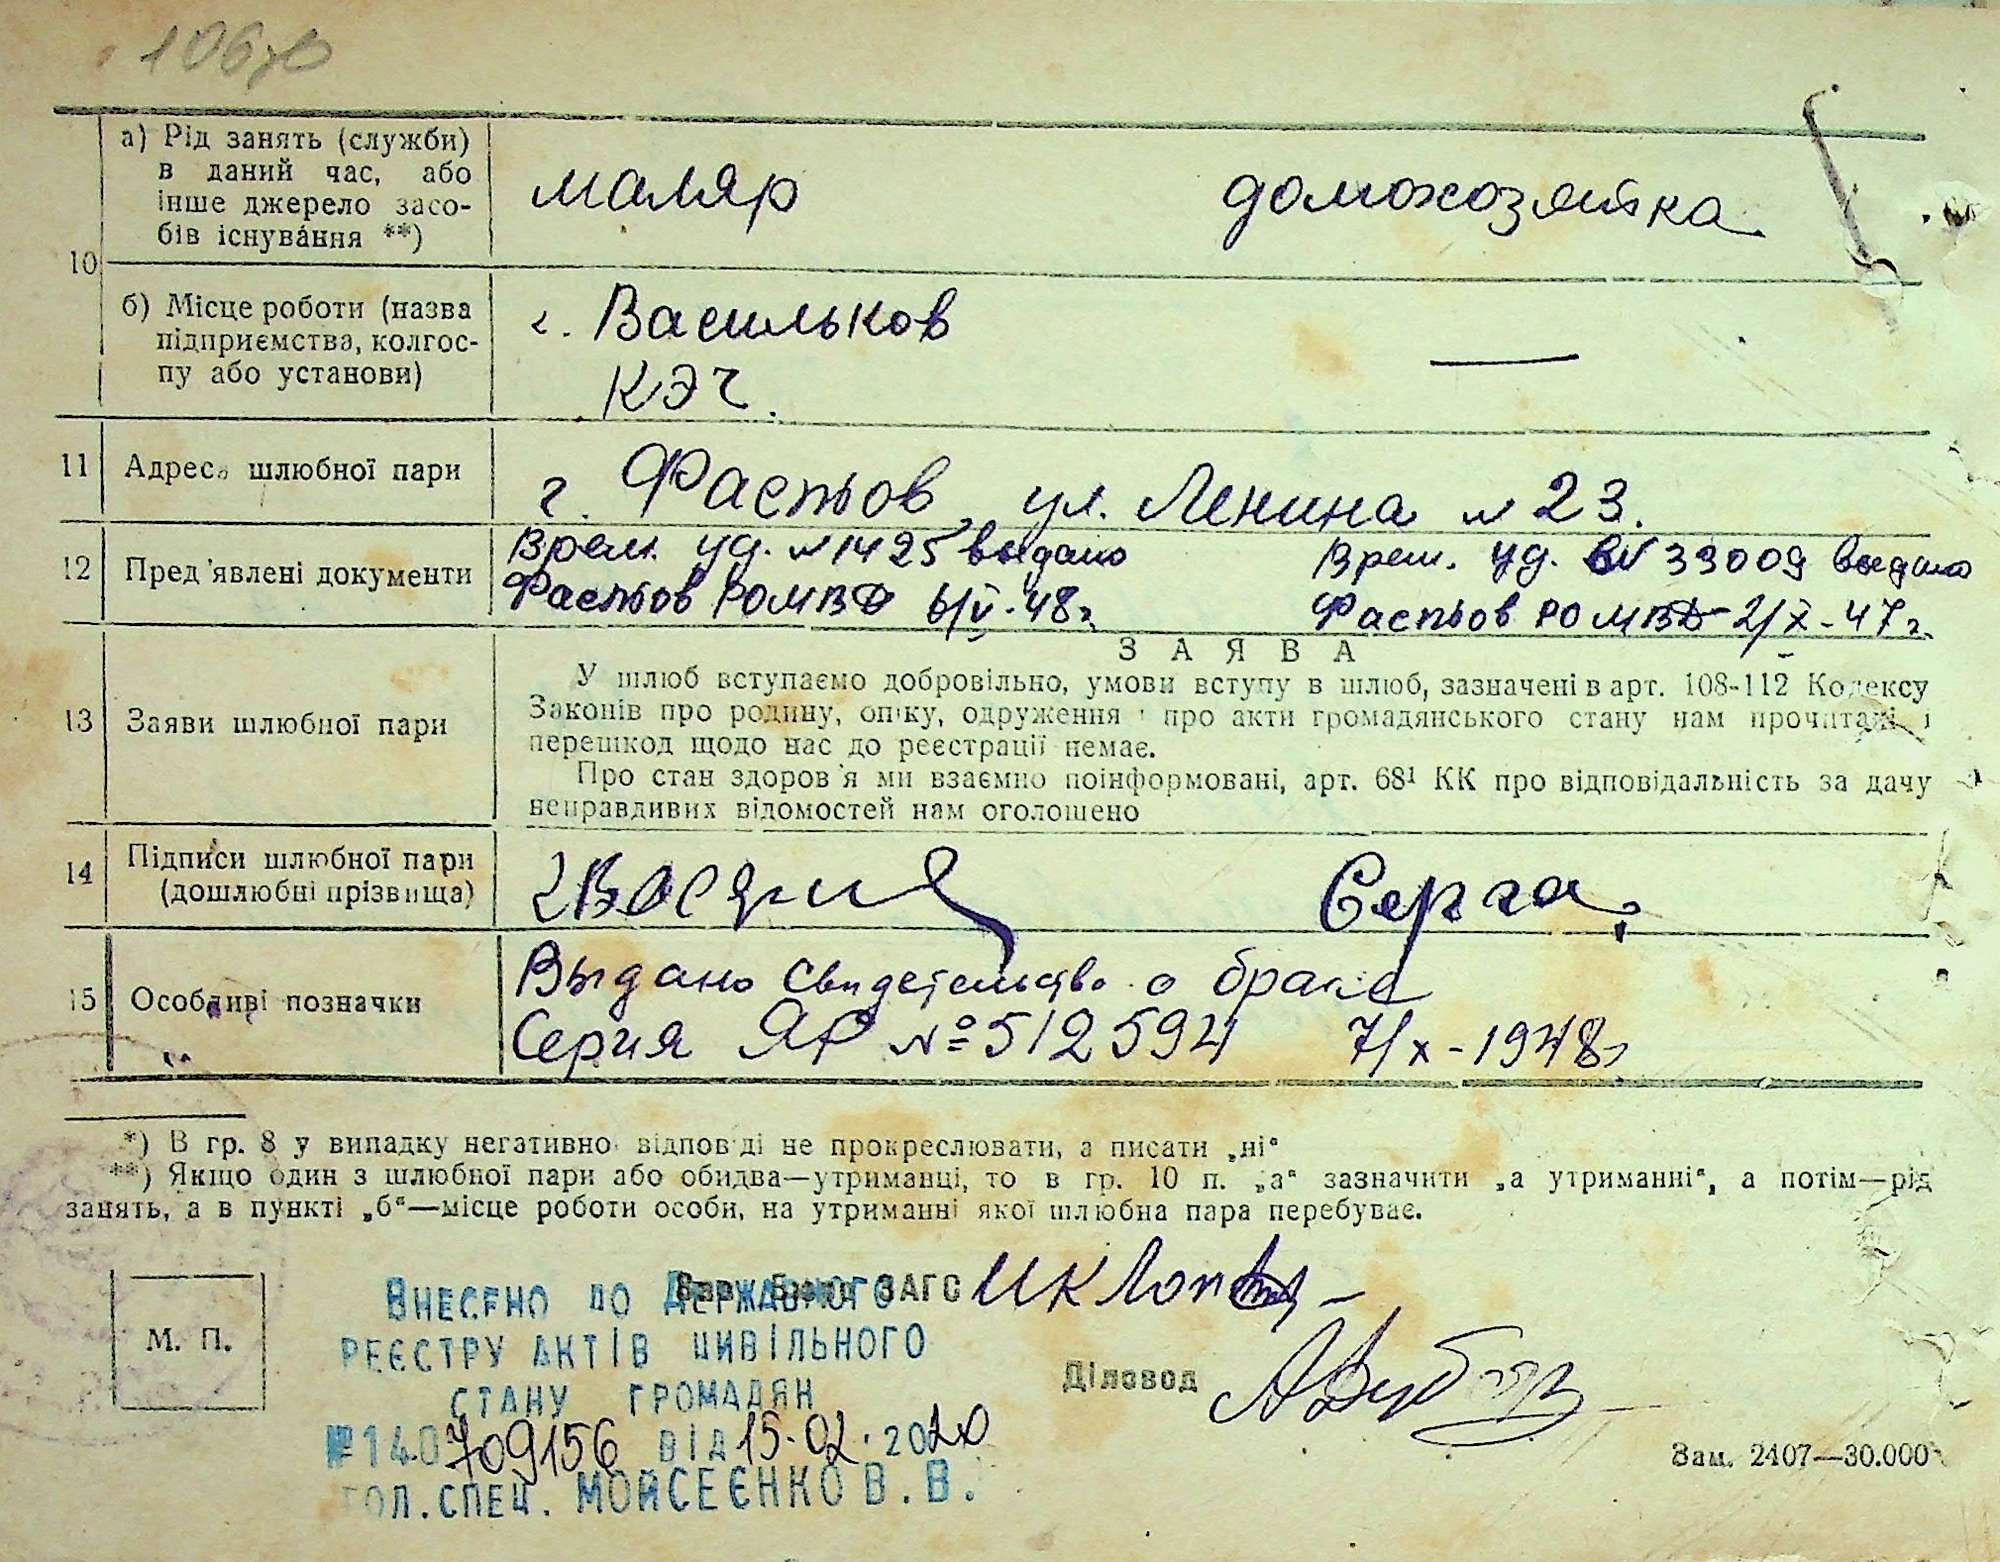 10
а) Рід занять (служби)
в даний час, або
інше джерело засо-
бів існування **)
маляр
домохозяйка
б) Місце роботи (назва
підприємства, колгос-
пу або установи)
г. Васильков
КЭЧ.
—
11 Адреса шлюбної пари
г. Фастов, ул. Ленина № 23.
12 Пред'явлені документи
Врем. уд. № 1425 выдано
Фастов РОМВД 6/V-48г.
Врем. уд. № 39009 выдано
Фастов РОМВД 2/X-47г.
13 Заяви шлюбної пари
ЗАЯВА
У шлюб вступаємо добровільно, умови вступу в шлюб, зазначені в арт. 108-112 Кодексу
Законів про родину, опіку, одруження і про акти громадянського стану нам прочитані і
перешкод щодо нас до реєстрації немає.
Про стан здоров'я ми взаємно поінформовані, арт. 68¹ КК про відповідальність за дачу
неправдивих відомостей нам оголошено
14 Підписи шлюбної пари
(дошлюбні прізвища)
Серга
15 Особливі позначки
Выдано Свидетельство о браке
Серия ЯР № 512594 7/X-1948г
*) В гр. 8 у випадку негативної відповіді не прокреслювати, а писати „ні“
**) Якщо один з шлюбної пари або обидва—утриманці, то в гр. 10 п. „а“ зазначити „а утриманні“, а потім—рід
занять, а в пункті „б“—місце роботи особи, на утриманні якої шлюбна пара перебуває.
М. П.
Зав. Бюро ЗАГС
Діловод
Внесено до Державного
реєстру актів цивільного
стану громадян
№140709156 від 15.02.2020
гол.спец. Мойсеєнко В.В.
Зам. 2407—30.000